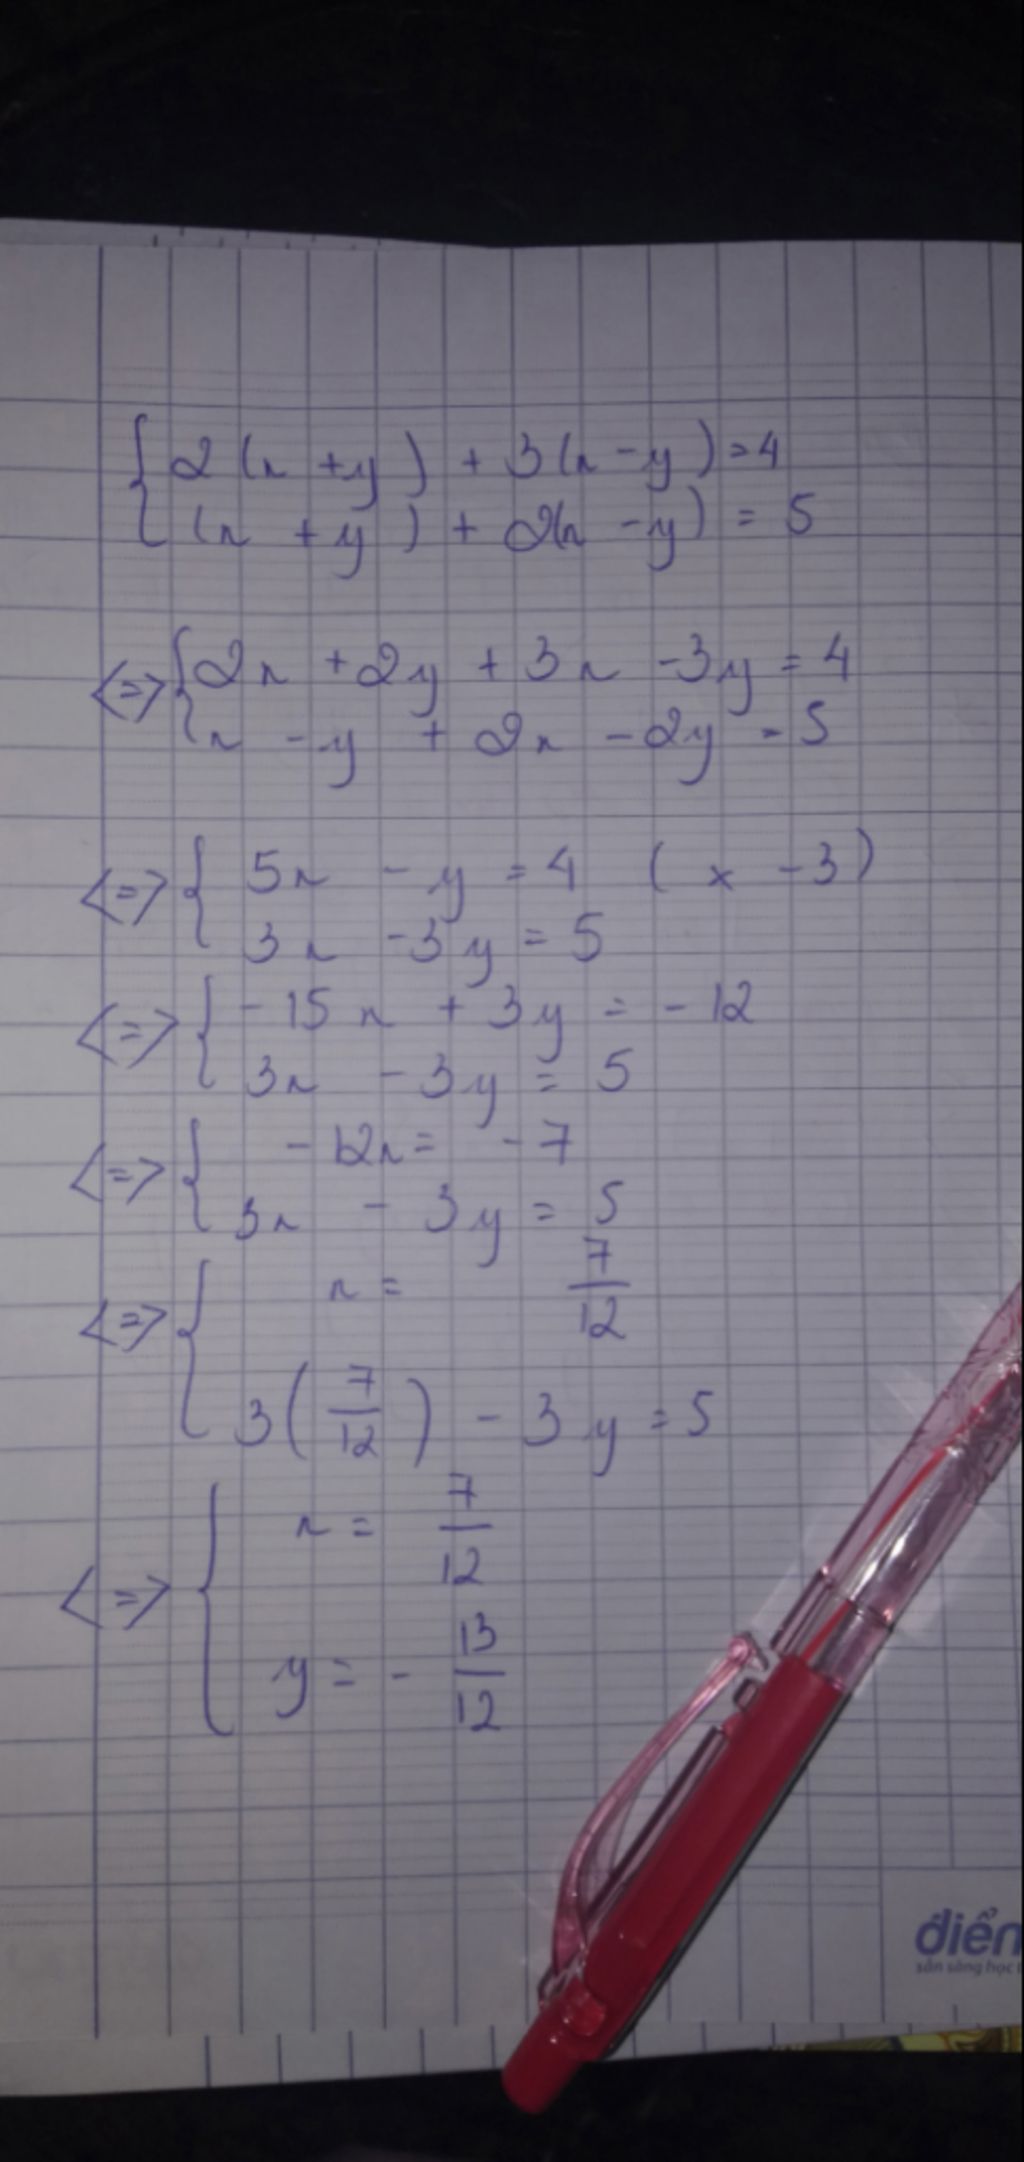 { 2(x + y) + 3(x - y) = 4
(x + y) + 2(x - y) = 5
<=> { 2x + 2y + 3x - 3y = 4
x - y + 2x - 2y = 5
<=> { 5x - y = 4 ( x - 3)
3x - 3y = 5
<=> { - 15x + 3y = - 12
3x - 3y = 5
<=> { - 12x = - 7
3x - 3y = 5
<=> { x = 7/12
3(7/12) - 3y = 5
<=> { x = 7/12
y = - 13/12
điển
sẵn sàng học